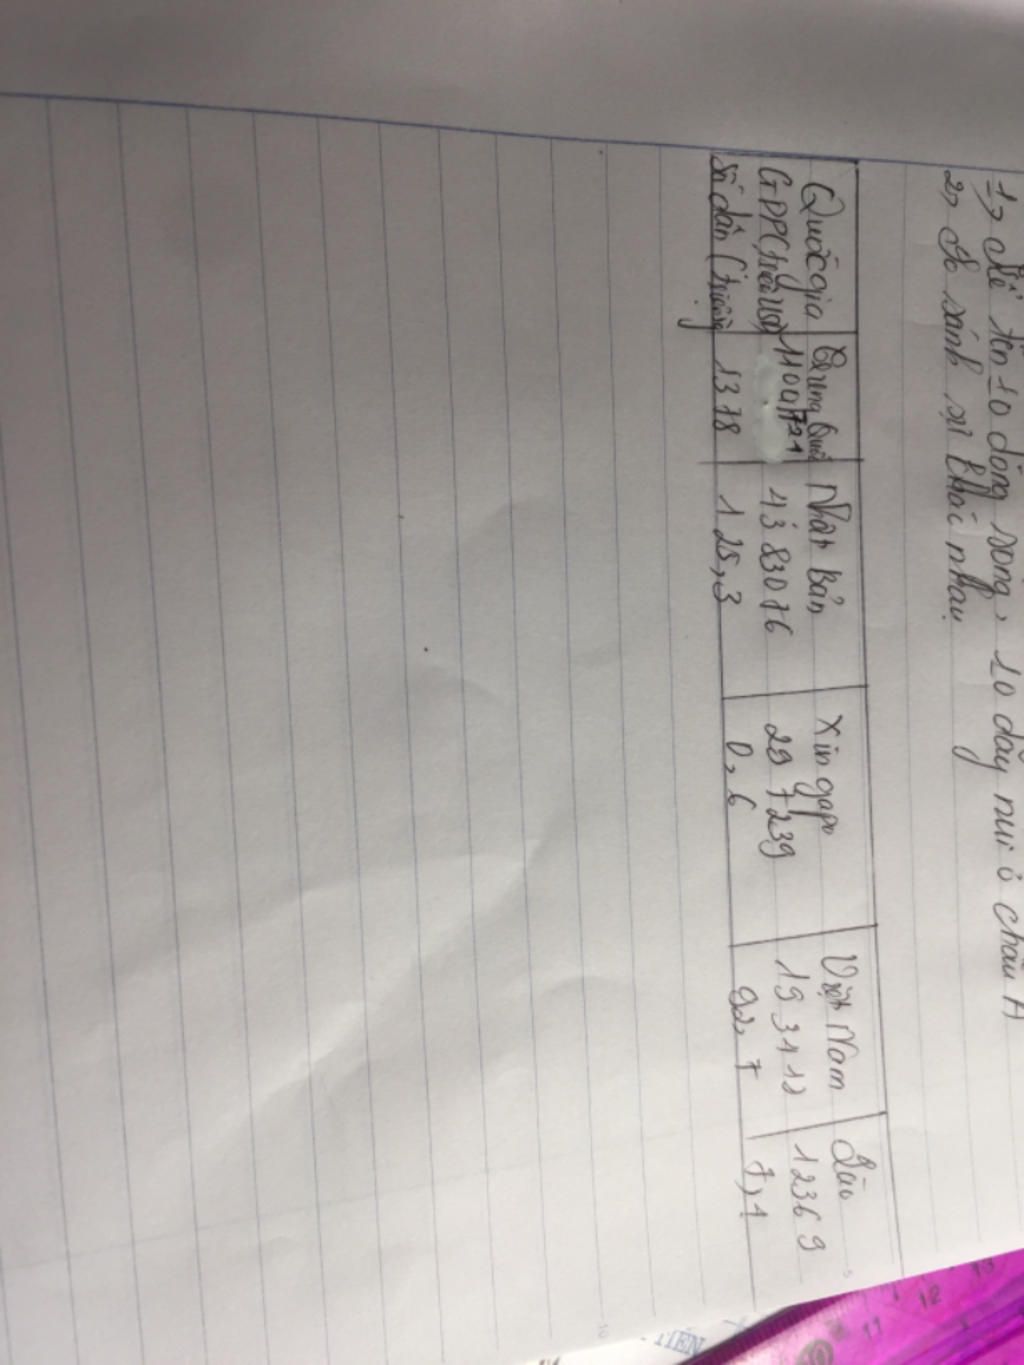 1, Kể tên 10 dòng sông, 10 dãy núi ở châu Á
2, So sánh sự khác nhau
Quốc gia Trung Quốc Nhật Bản Xin gapo Việt Nam Lào
GDP (triệu USD) 4383076 297239 193412 12369
Số dân (triệu 1378 125,3 0,6 92,7 7,1
TIẾN
11 12 13